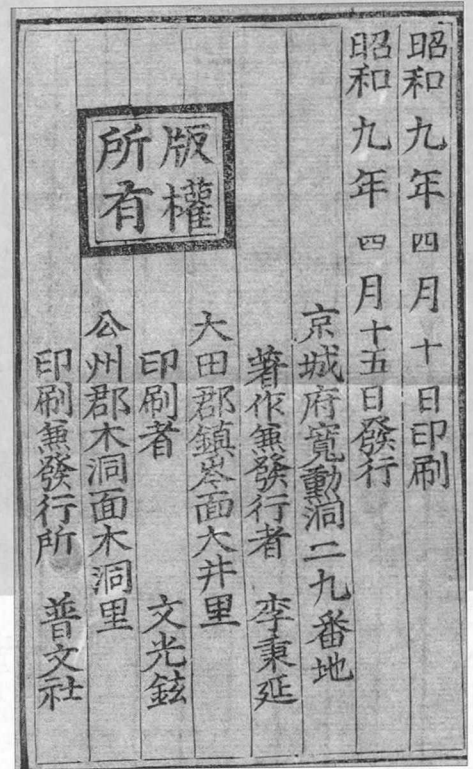 昭和九年四月十日印刷
昭和九年四月十五日發行
京城府寬勳洞二九番地
著作兼發行者 李秉延
大田郡鎭岑面大井里
印刷者 文光鉉
公州郡木洞面木洞里
印刷兼發行所 普文社
版權
所有